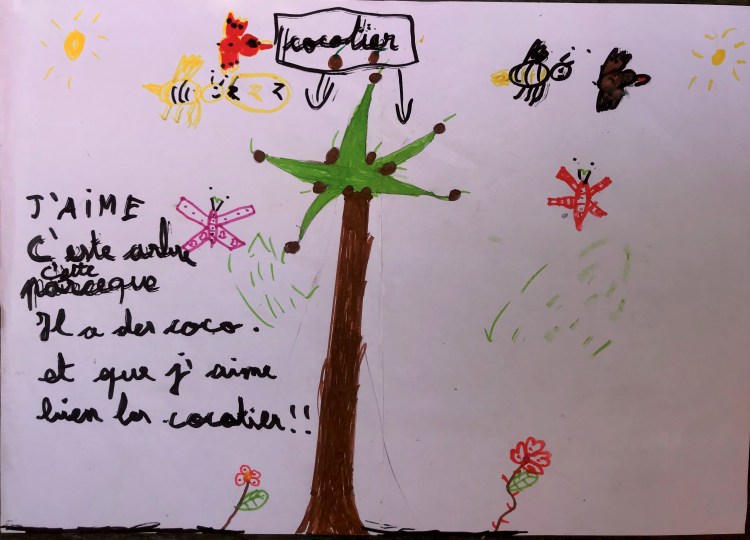 cocotier
J'AIME
C'este arbre
c'ette
parceque
Il a des coco.
et que j'aime
bien les cocotier!!